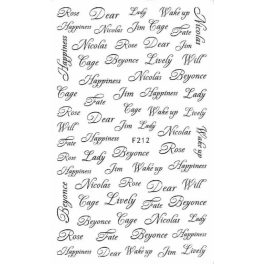 Rose Dear Lady Wake up Nicolas
Happiness Nicolas Rose Jim Cage
Cage Beyonce Lively Will
Happiness Nicolas Beyonce
Rose Fate Cage Jim Happiness
Dear Jim Lady Rose
Will Fate F212 Wake up
Rose Lady Beyonce Happiness
Jim Wake up Will
Beyonce Nicolas Rose Dear Rose
Cage Lively Cage Fate
Will Nicolas Beyonce
Rose Fate Beyonce Jim Rose
Happiness Dear Wake up Jim Lively